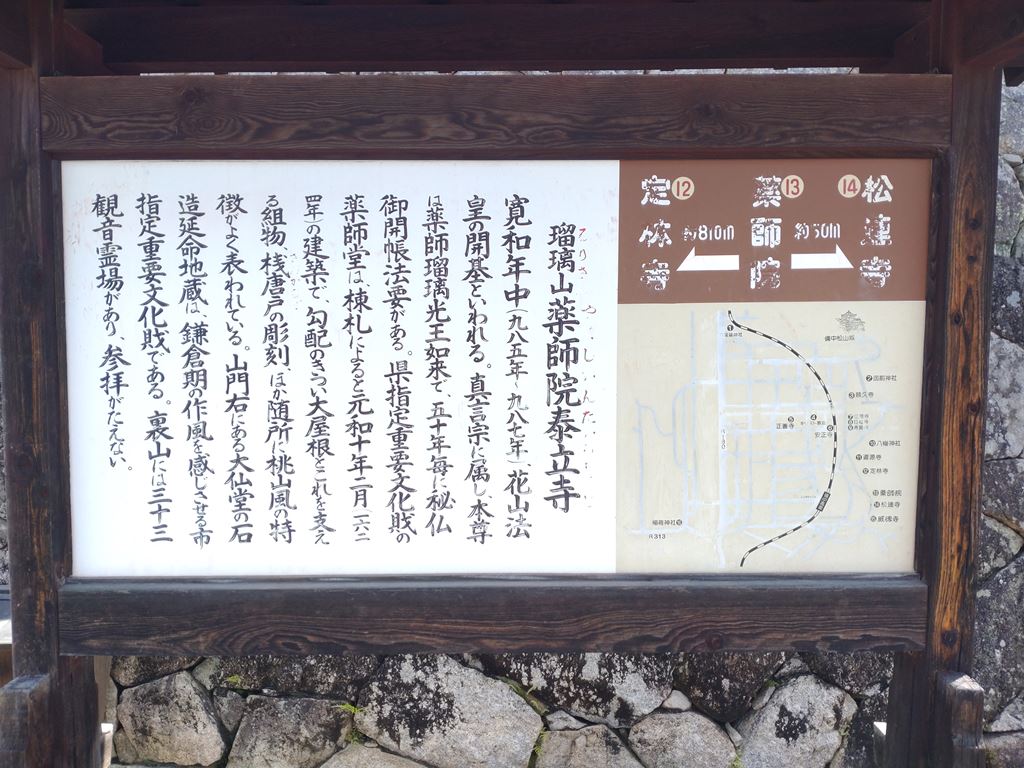 瑠璃山薬師院泰立寺
寛和年中(九八五年~九八七年)花山法
皇の開基といわれる。真言宗に属し、本尊
は薬師瑠璃光王如来で、五十年毎に秘仏
御開帳法要がある。県指定重要文化財の
薬師堂は、棟札によると元和十年二月(一六二
四年)の建築で、勾配のきつい大屋根とこれを支え
る組物、桟唐戸の彫刻、ほか随所に桃山風の特
徴がよく表われている。山門右にある大仙堂の石
造延命地蔵は、鎌倉期の作風を感じさせる市
指定重要文化財である。裏山には三十三
観音霊場があり、参拝がたえない。
定林寺 ⑫
薬師院 ⑬
松連寺 ⑭
約810m
約50m
備中松山城
②御前神社
③頼久寺
⑤
正善寺
④
⑥
安正寺
⑩八幡神社
⑪道源寺
⑫定林寺
⑬薬師院
⑭松連寺
⑮威徳寺
稲荷神社⑯
R313